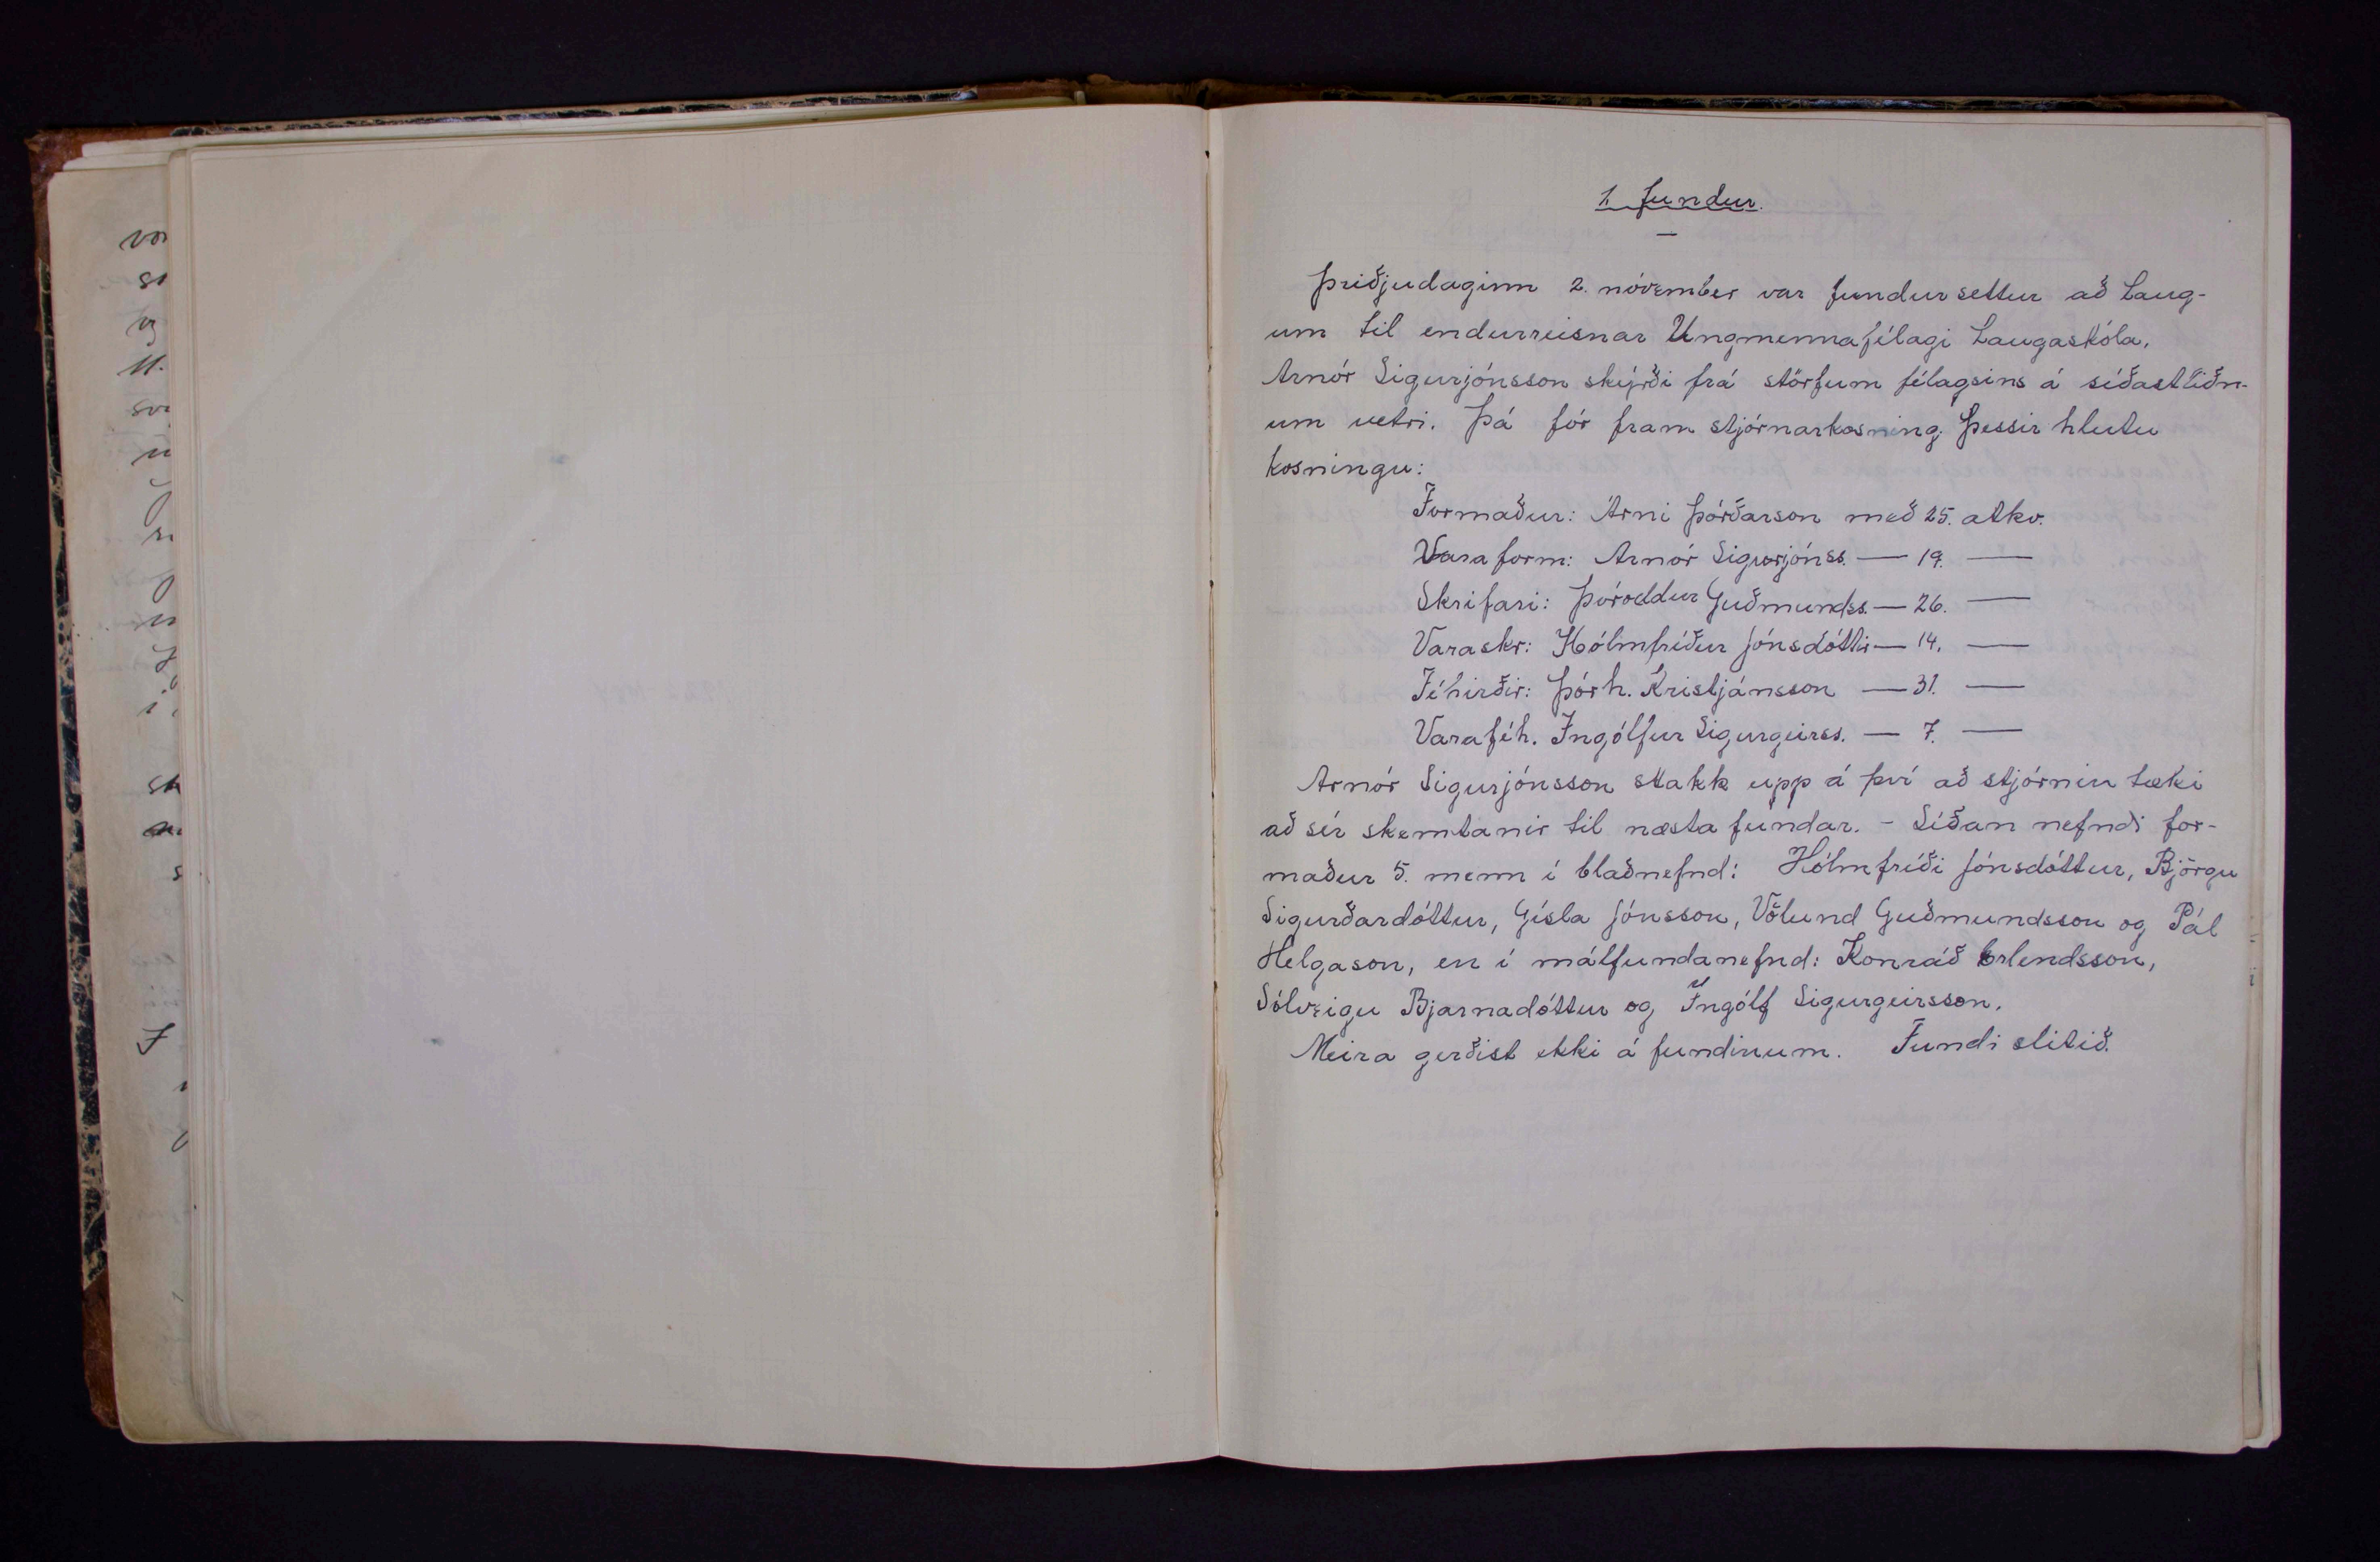 1. fundur.
Þriðjudaginn 2. nóvember var fundur settur að Laug-
um til endurreisnar Ungmennafélagi Laugaskóla.
Arnór Sigurjónsson skýrði frá störfum félagsins á síðastliðn-
um vetri. Þá fór fram stjórnarkosning. Þessir hlutu
kosningu:
Formaður: Árni Þórðarson með 25. atkv.
Varaform: Arnór Sigurjónss. — 19. —
Skrifari: Þóroddur Guðmundss. — 26. —
Varaskr: Hólmfríður Jónsdóttir — 14. —
Féhirðir: Þórh. Kristjánsson — 31. —
Varaféh. Ingólfur Sigurgeirss. — 7. —
Arnór Sigurjónsson stakk upp á því að stjórnin tæki
að sér skemtanir til næsta fundar. - Síðan nefndi for-
maður 5. menn í blaðnefnd: Hólmfríði Jónsdóttur, Björgu
Sigurðardóttur, Gísla Jónsson, Völund Guðmundsson og Pál
Helgason, en í málfundanefnd: Konráð Erlendsson,
Sólveigu Bjarnadóttur og Ingólf Sigurgeirsson.
Meira gerðist ekki á fundinum. Fundi slitið.